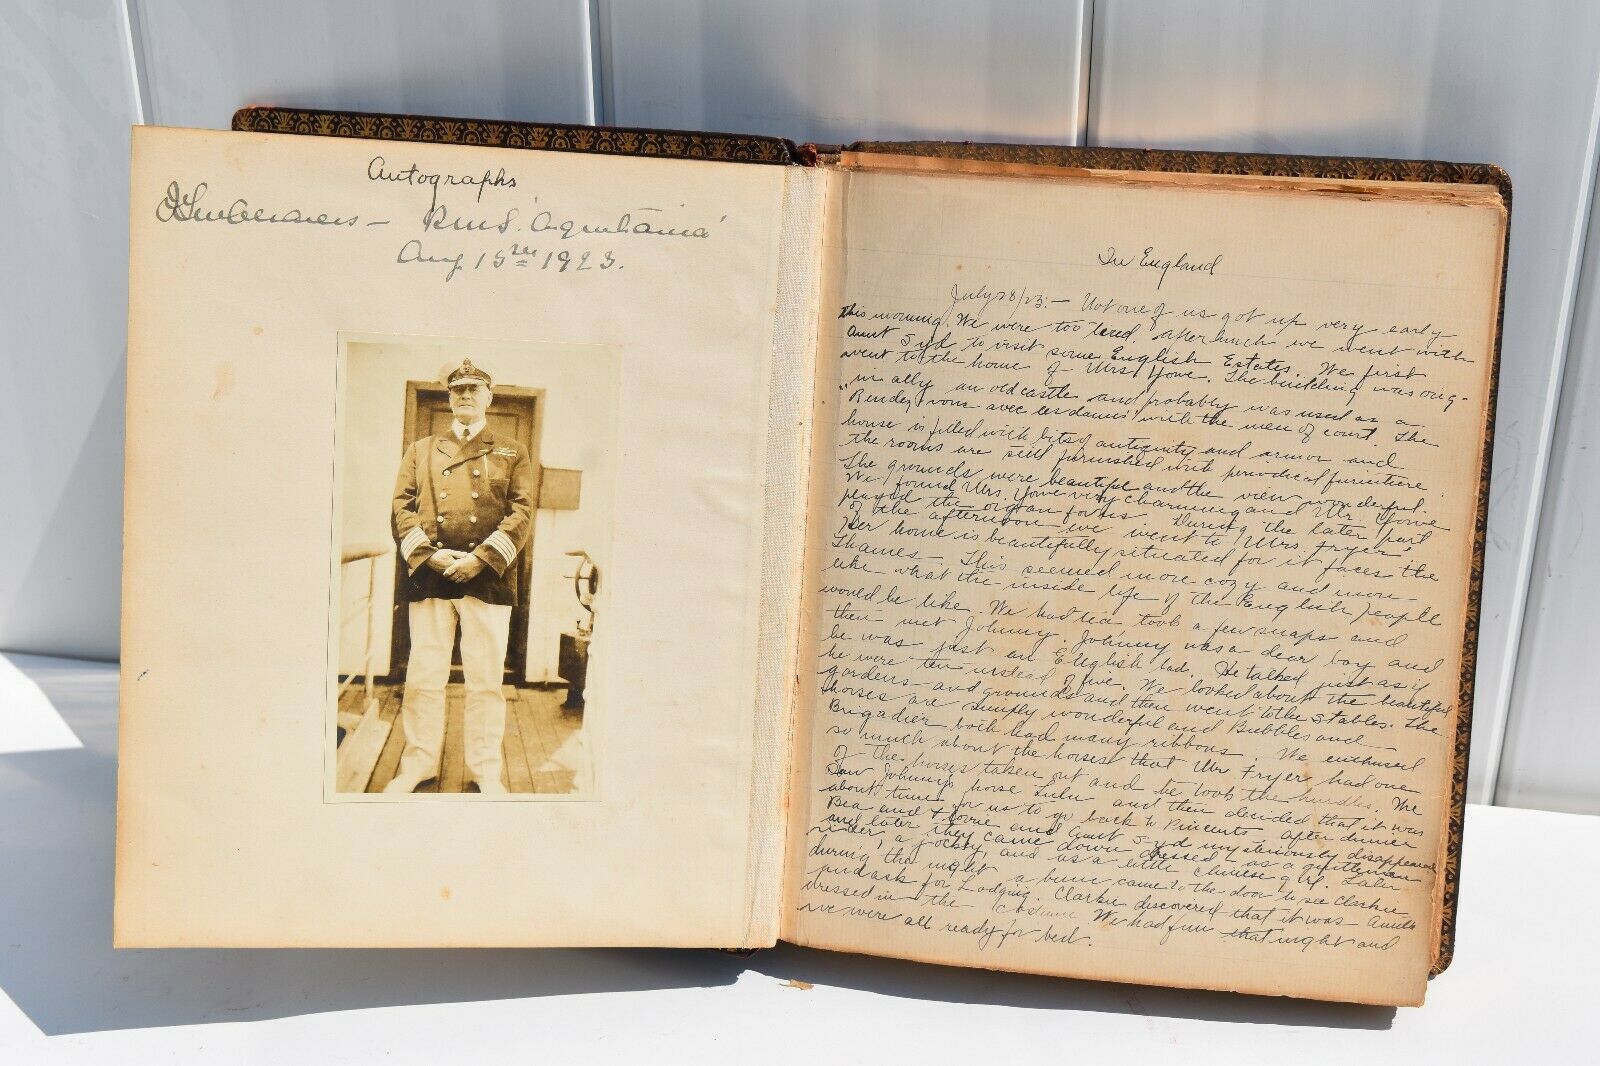 Autographs
R.M.S. 'Aquitania'
Aug 15th 1923.
In England
July 28/23:— Not one of us got up very early
this morning. We were too tired. After lunch we went with
Aunt Syd to visit some English Estates. We first
went to the home of Mrs. Yowe. The building was orig-
inally an old castle and probably was used as a
"Rendez vous avec les dames" with the men of court. The
house is filled with bits of antiquity and armor and
the rooms are still furnished with periodical furniture.
The grounds were beautiful and the view wonderful.
We found Mrs. Yowe very charming and Mr. Yowe
played the organ for us. During the later part
of the afternoon we went to Mrs. Fryer's.
Her home is beautifully situated for it faces the
Thames. This seemed more cozy and more
like what the inside life of the English people
would be like. We had tea took a few snaps and
then met Johnny. Johnny was a dear boy and
he was just an English lad. He talked just as if
he were ten instead of five. We looked about the beautiful
gardens and grounds and then went to the stables. The
horses are simply wonderful and Bubbles and
Brigadier both had many ribbons. We enthused
so much about the horses that Mr. Fryer had one
of the horses taken out and he took the hurdles. We
saw Johnny's horse Lulu and then decided that it was
about time for us to go back to Pincents. After dinner
Bea and and Aunt Syd mysteriously disappeared
and later they came down dressed as a gentleman
rider, a jockey, and as a little Chinese girl. Later
during the night a bum came to the door to see Clarkie
and ask for Lodging. Clarkie discovered that it was
dressed in the costume. We had fun that night and
we were all ready for bed.